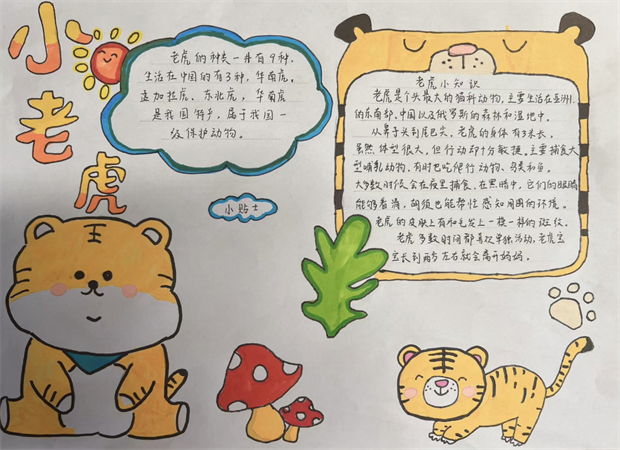 小老虎
老虎的种类一共有9种，
生活在中国的有3种，华南虎。
孟加拉虎、东北虎，华南虎
是我国特产，属于我国一
级保护动物。
小贴士
老虎小知识
老虎是个头最大的猫科动物，主要生活在亚洲
的东南部、中国以及俄罗斯的森林和湿地中。
从鼻子头到尾巴尖，老虎的身体有3米长，
虽然体型很大，但行动十分敏捷。主要捕食大
型哺乳动物，有时也吃爬行动物、鸟类和鱼。
大多数时候会在夜里捕食，在黑暗中，它们的眼睛
能够看清，胡须也能帮忙感知周围的环境。
老虎的皮肤上有和毛发上一模一样的斑纹。
老虎多数时间都喜欢单独活动，老虎宝
宝长到两岁左右就会离开妈妈。